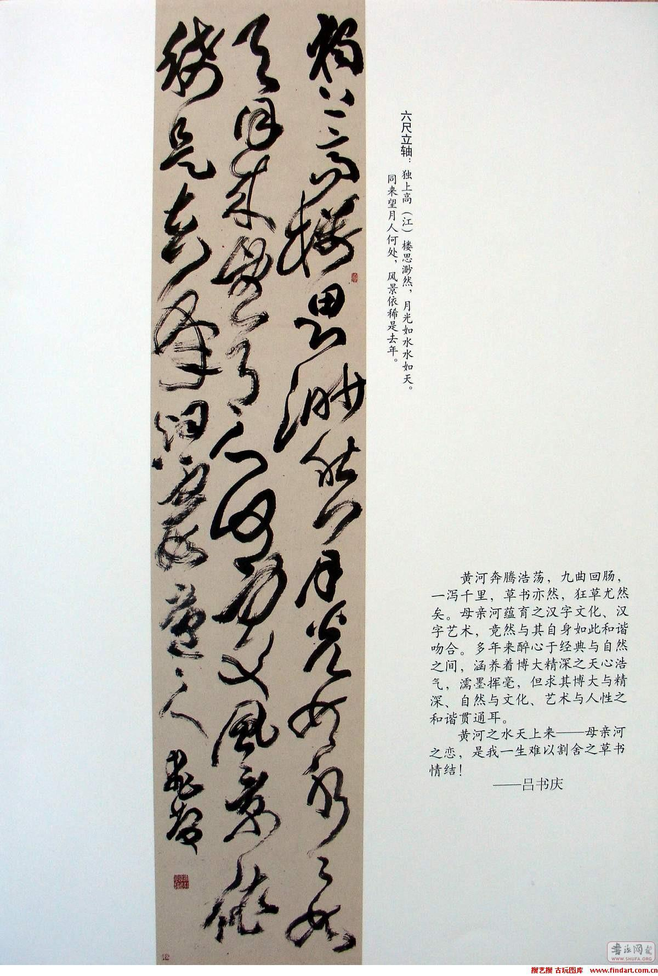 獨上高樓思渺然月光如水々如
天同來望月人何處風景依
稀是去年
六尺立轴：独上高（江）楼思渺然，月光如水水如天。
同来望月人何处，风景依稀是去年。
黄河奔腾浩荡，九曲回肠，
一泻千里，草书亦然，狂草尤然
矣。母亲河蕴育之汉字文化、汉
字艺术，竟然与其自身如此和谐
吻合。多年来醉心于经典与自然
之间，涵养着博大精深之天心浩
气，濡墨挥毫，但求其博大与精
深、自然与文化、艺术与人性之
和谐贯通耳。
黄河之水天上来——母亲河
之恋，是我一生难以割舍之草书
情结！
——吕书庆
www.findart.com.cn